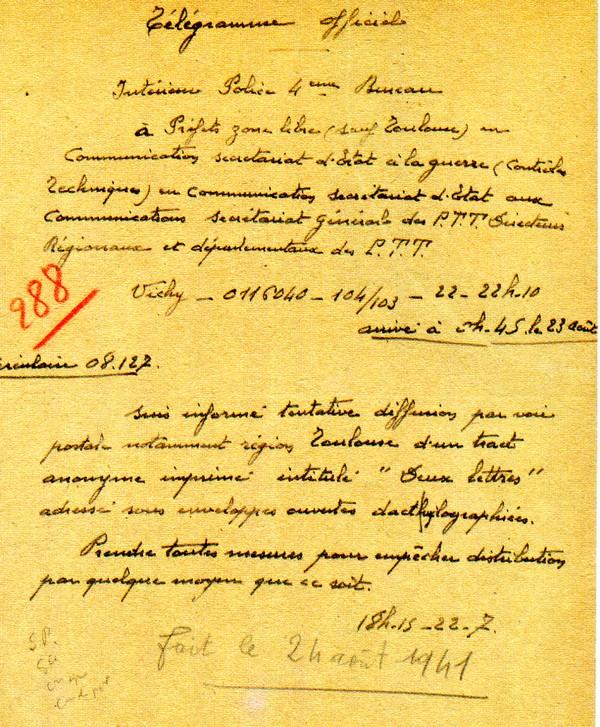 Télégramme officiel
Intérieur Police 4eme Bureau
à Préfets zone libre (sauf Toulouse) en
Communication secretariat d'Etat à la guerre (Contrôles
Techniques) en Communication secrétariat d'Etat aux
Communications secrétariat Général des P.T.T. Directeurs
Régionaux et départementaux des P.T.T.
288
Vichy - 0116040 - 104/103 - 22 - 22h.10
arrivé à 0h.45. le 23 août
circulaire 08.127.
suis informé tentative diffusion par voie
postale notamment région Toulouse d'un tract
anonyme imprimé intitulé "Deux lettres"
adressé sous enveloppes ouvertes dacthylographiées.
Prendre toutes mesures pour empêcher distribution
par quelque moyen que ce soit.
18h.15 - 22 - 7.
fait le 24 août 1941
S.P.